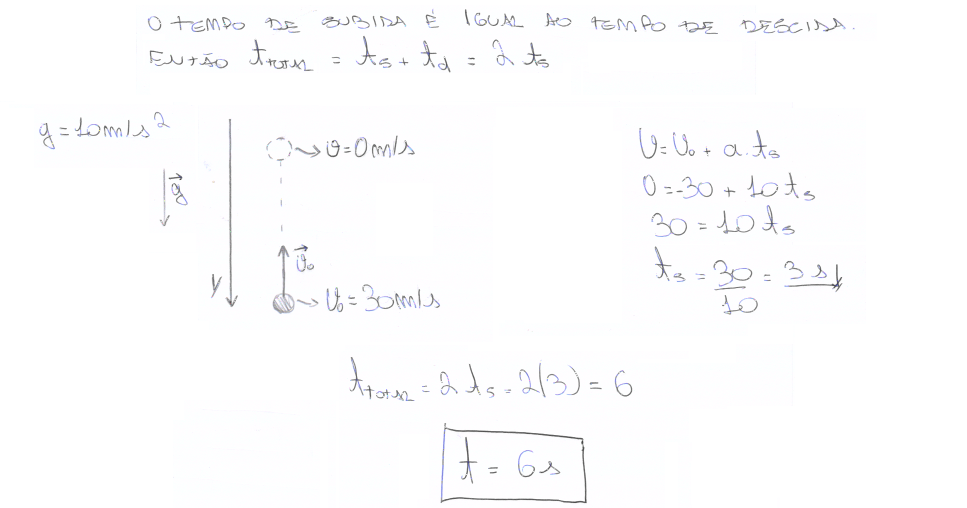 O TEMPO DE SUBIDA É IGUAL AO TEMPO DE DESCIDA.
ENTÃO t_TOTAL = t_s + t_d = 2 t_s
g = 10 m/s²
g⃗
v = 0 m/s
v⃗₀
y
v₀ = 30 m/s
v = v₀ + a.t_s
0 = -30 + 10 t_s
30 = 10 t_s
t_s = 30/10 = 3 s
t_TOTAL = 2 t_s = 2(3) = 6
t = 6 s